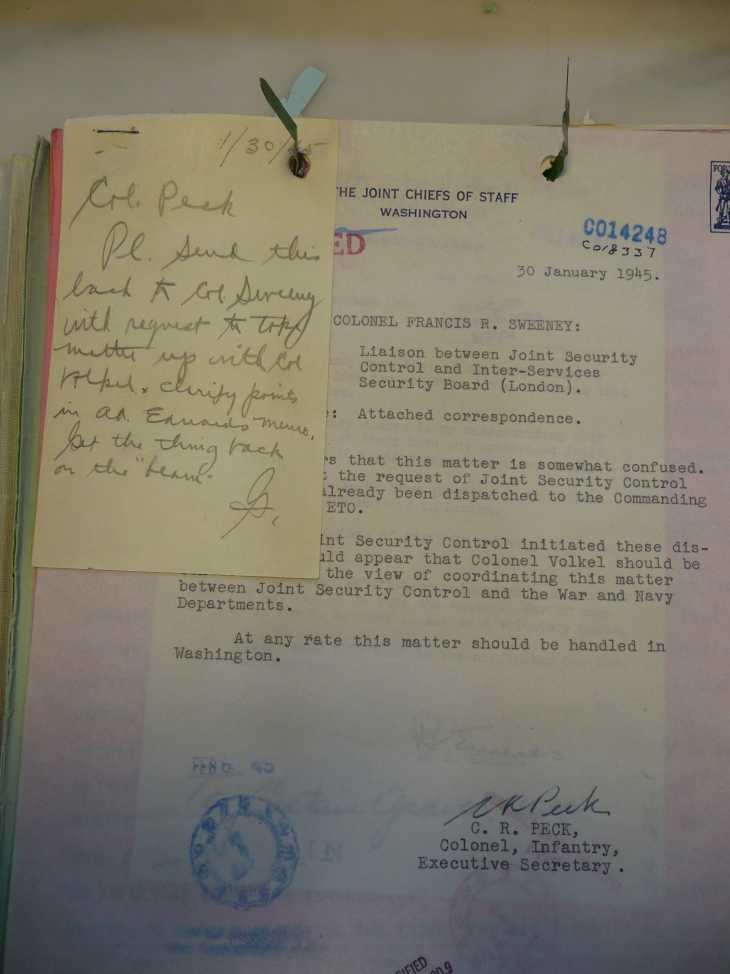 1/30/45
Col. Peck
Pl. Send this
back to Col Sweeny
with request to take
matter up with Col
Volkel & clarify points
in Ad. Edwards memo.
Get the thing back
on the "beam"
G.
THE JOINT CHIEFS OF STAFF
WASHINGTON
ED
CO14248
30 January 1945.
COLONEL FRANCIS R. SWEENEY:
Liaison between Joint Security
Control and Inter-Services
Security Board (London).
: Attached correspondence.
rs that this matter is somewhat confused.
t the request of Joint Security Control
already been dispatched to the Commanding
ETO.
int Security Control initiated these dis-
uld appear that Colonel Volkel should be
the view of coordinating this matter
between Joint Security Control and the War and Navy
Departments.
At any rate this matter should be handled in
Washington.
C R Peck
C. R. PECK,
Colonel, Infantry,
Executive Secretary.